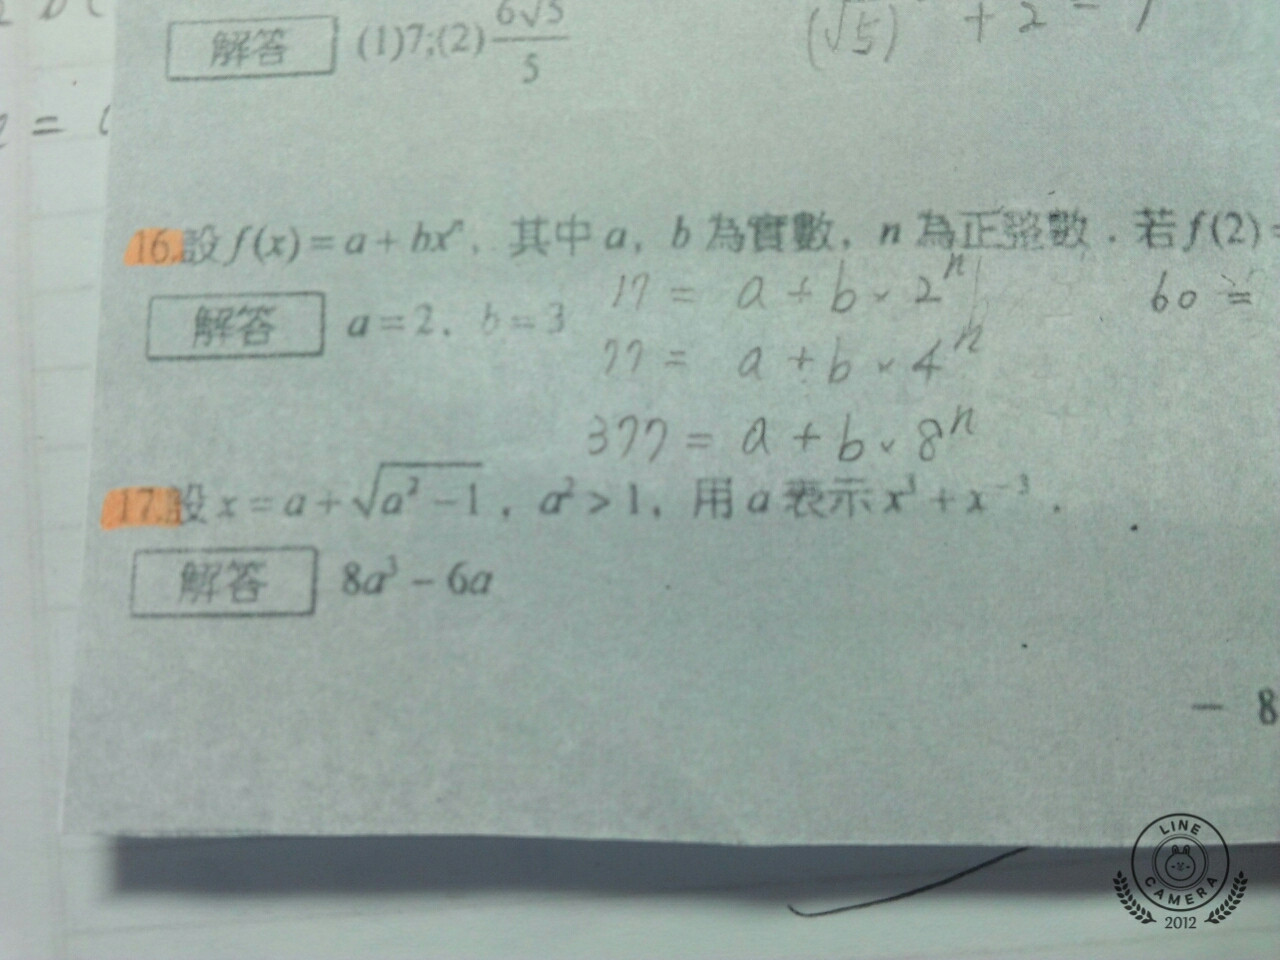 解答 (1)7;(2) 6√5/5
(√5) + 2 =
16.設 f(x) = a + bxⁿ，其中 a，b 為實數，n 為正整數．若 f(2) =
17 = a + b × 2ⁿ
60 =
解答 a = 2．b = 3
77 = a + b × 4ⁿ
377 = a + b × 8ⁿ
17.設 x = a + √(a² − 1)，a² > 1，用 a 表示 x³ + x⁻³．
解答 8a³ − 6a
− 8
LINE CAMERA
2012